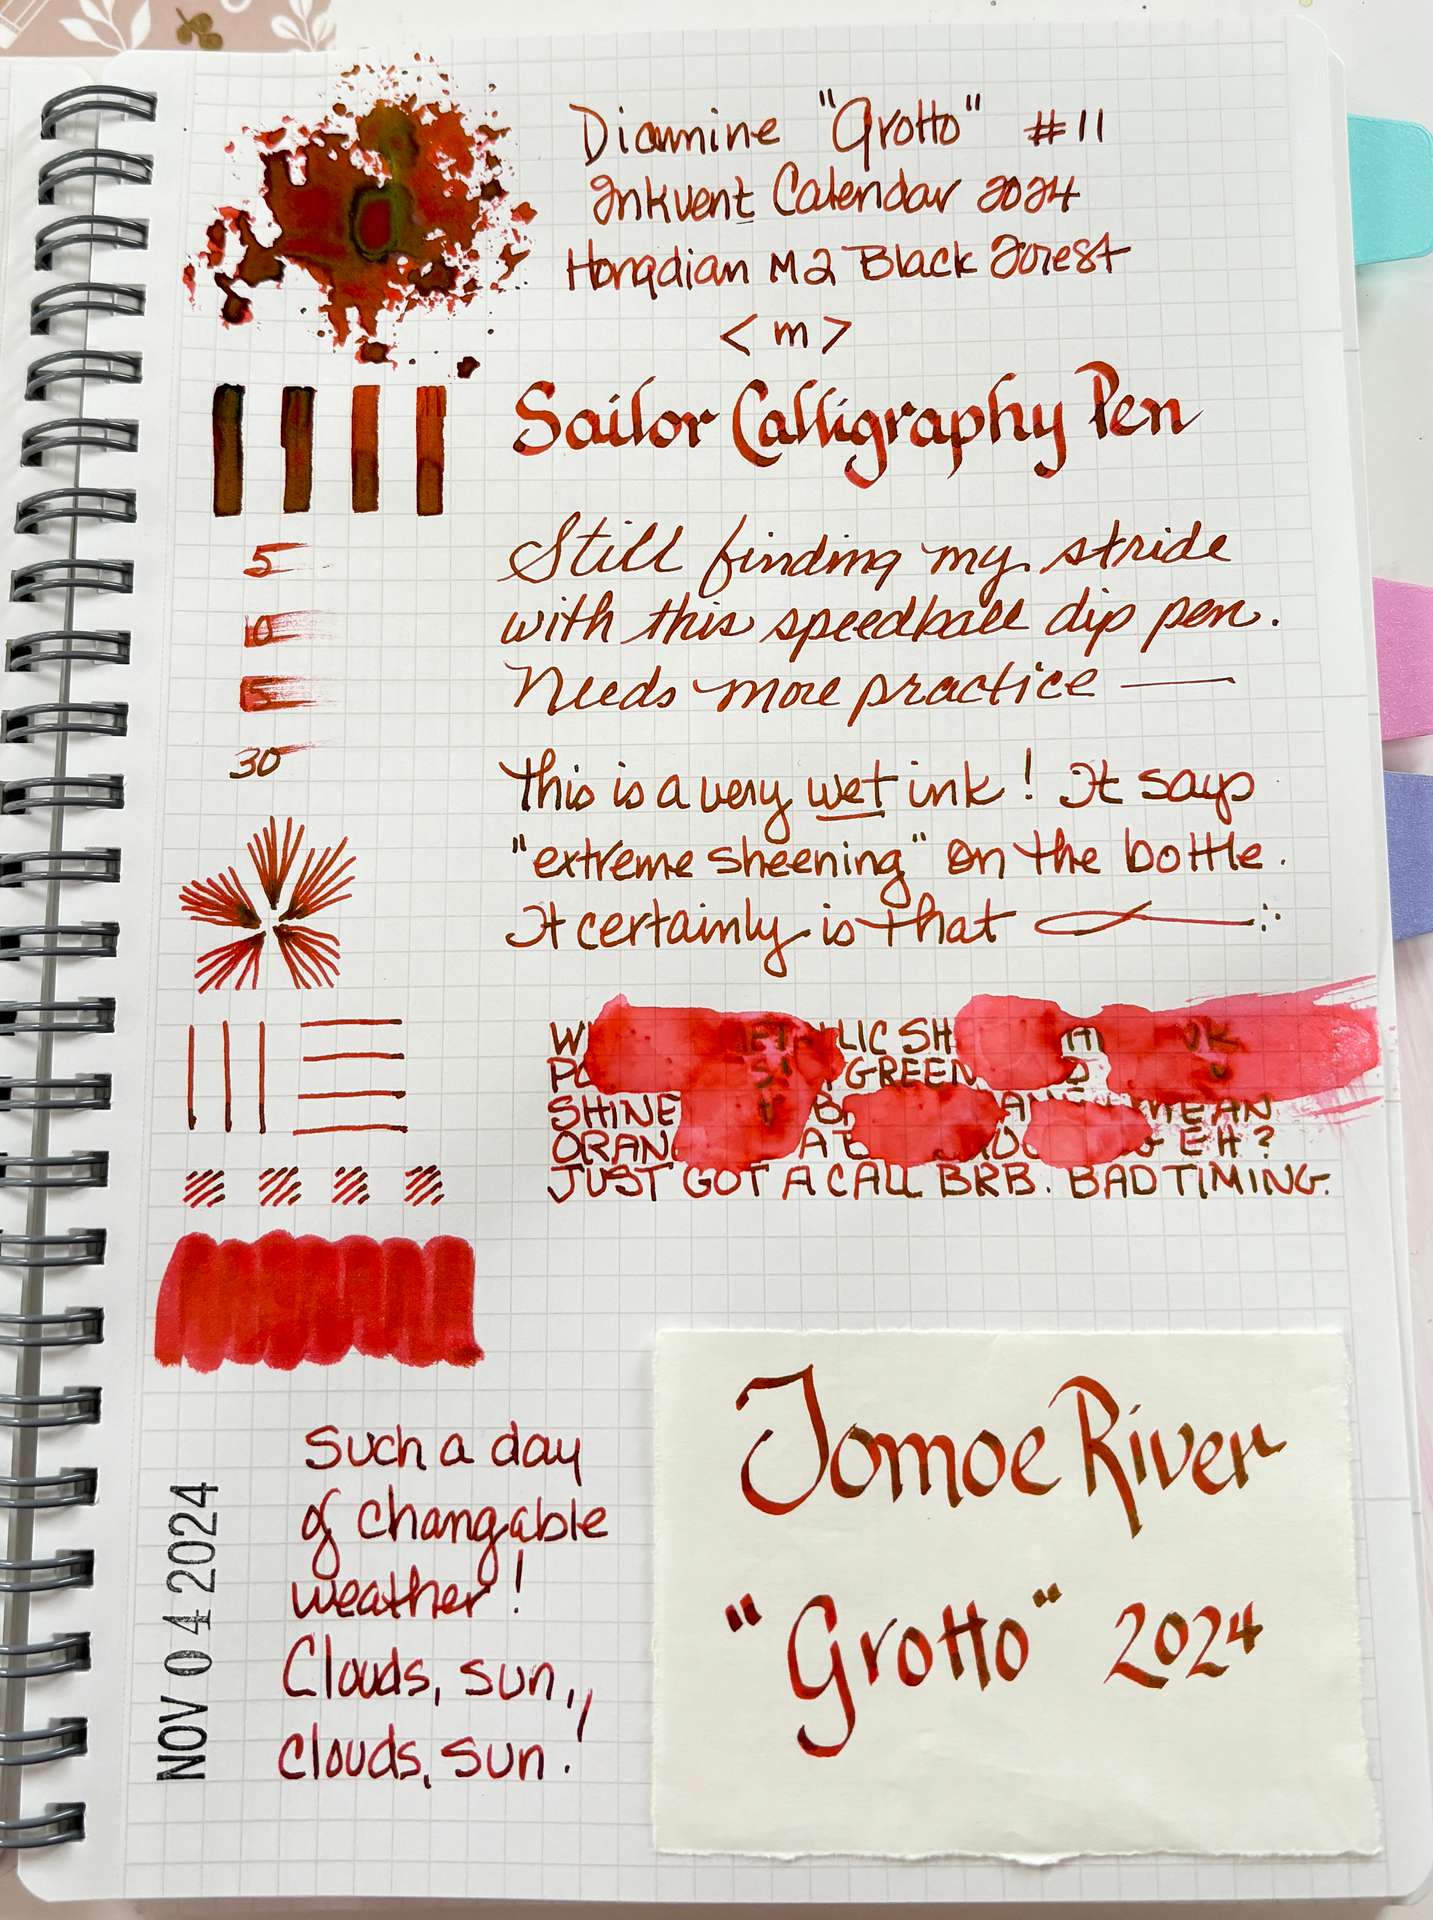 Diamine "Grotto" #11
Inkvent Calendar 2024
Hongdian M2 Black Forest
<m>
Sailor Calligraphy Pen
5
10
15
30
Still finding my stride
with this speedball dip pen.
Needs more practice —
This is a very wet ink! It says
"extreme sheening" on the bottle.
It certainly is that
LIC SH
GREEN
SHINE MEAN
EH?
JUST GOT A CALL BRB. BAD TIMING.
Such a day
of changable
weather!
Clouds, sun,
clouds, sun!
NOV 04 2024
Tomoe River
"Grotto" 2024